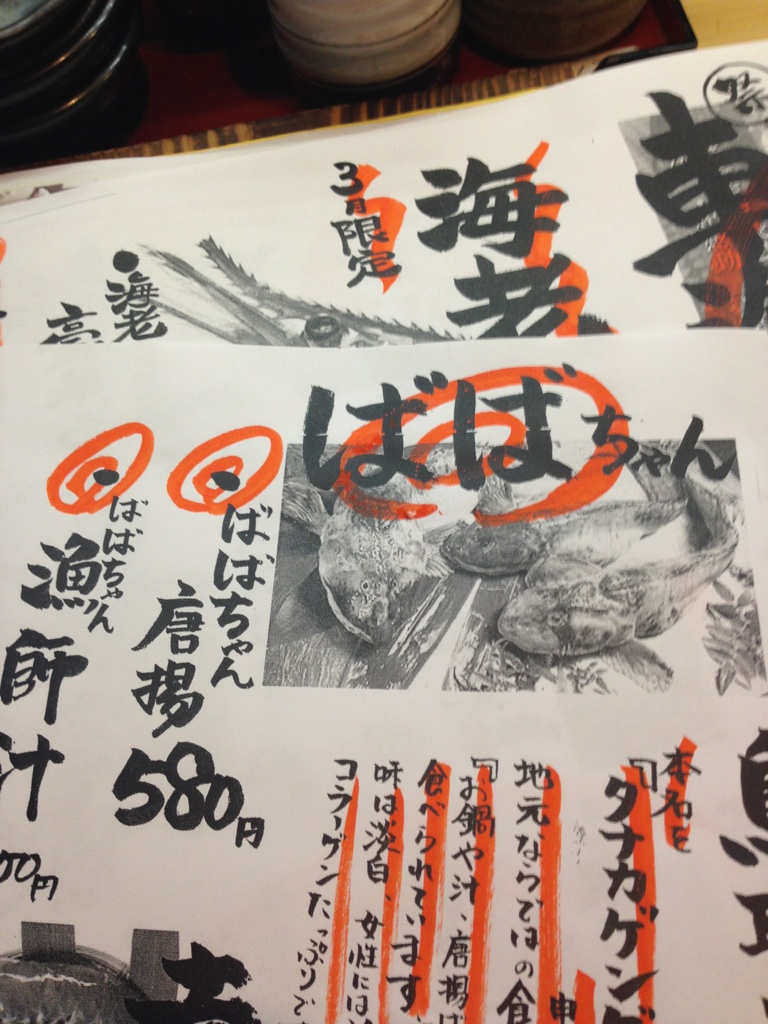 祭
海老
3月限定
海老
ばばちゃん
ばばちゃん
唐揚
580円
ばばちゃん
漁師汁
00円
本名を
『タナカゲンゲ
地元ならではの食
『お鍋や汁、唐揚げ
食べられています
味は淡白、女性には
コラーゲンたっぷりで